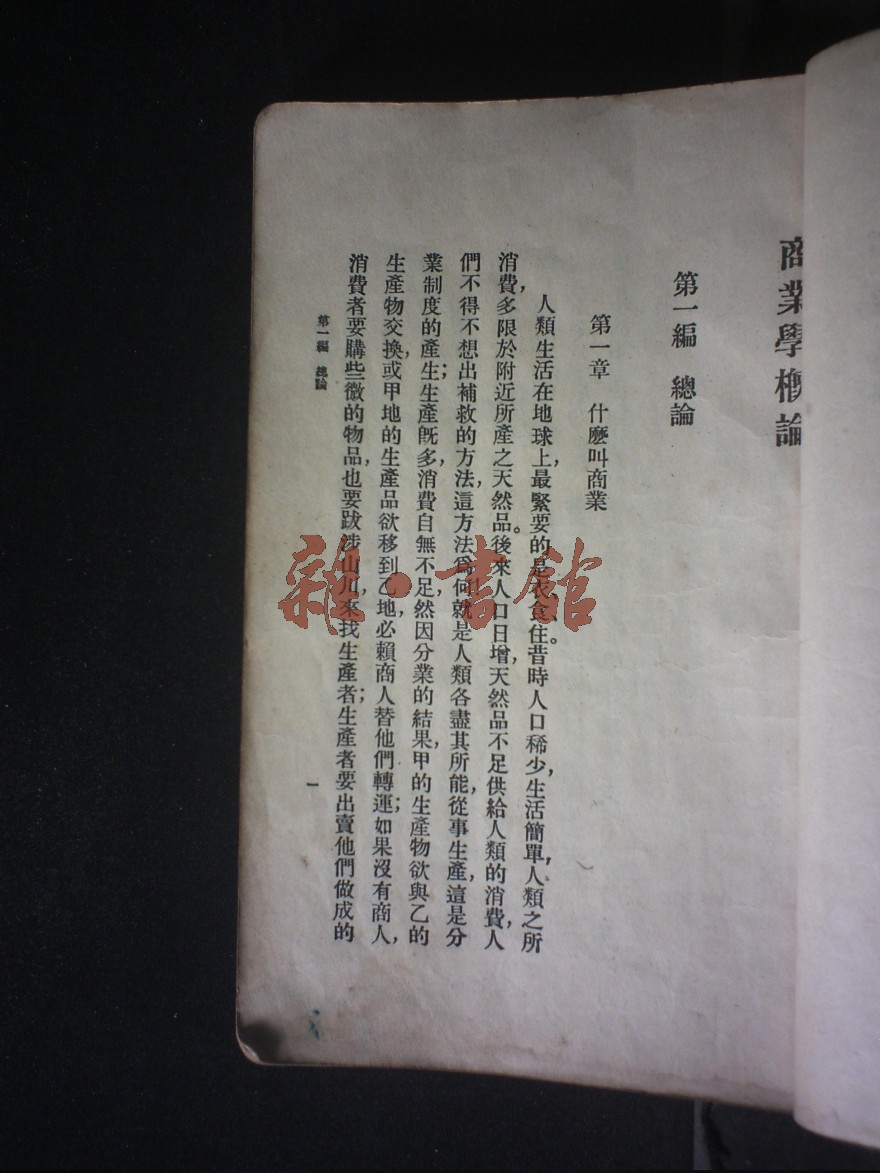 商業學概論
第一編　總論
第一章　什麽叫商業
人類生活在地球上，最緊要的是衣、食、住。昔時人口稀少，生活簡單，人類之所
消費，多限於附近所產之天然品。後來人口日增，天然品不足供給人類的消費，人
們不得不想出補救的方法，這方法爲何，就是人類各盡其所能，從事生產，這是分
業制度的產生；生產旣多，消費自無不足，然因分業的結果，甲的生產物欲與乙的
生產物交換，或甲地的生產品欲移到乙地，必賴商人替他們轉運；如果沒有商人，
消費者要購些微的物品，也要跋涉山川，來找生產者；生產者要出賣他們做成的
第一編　總論
一
雜·書館